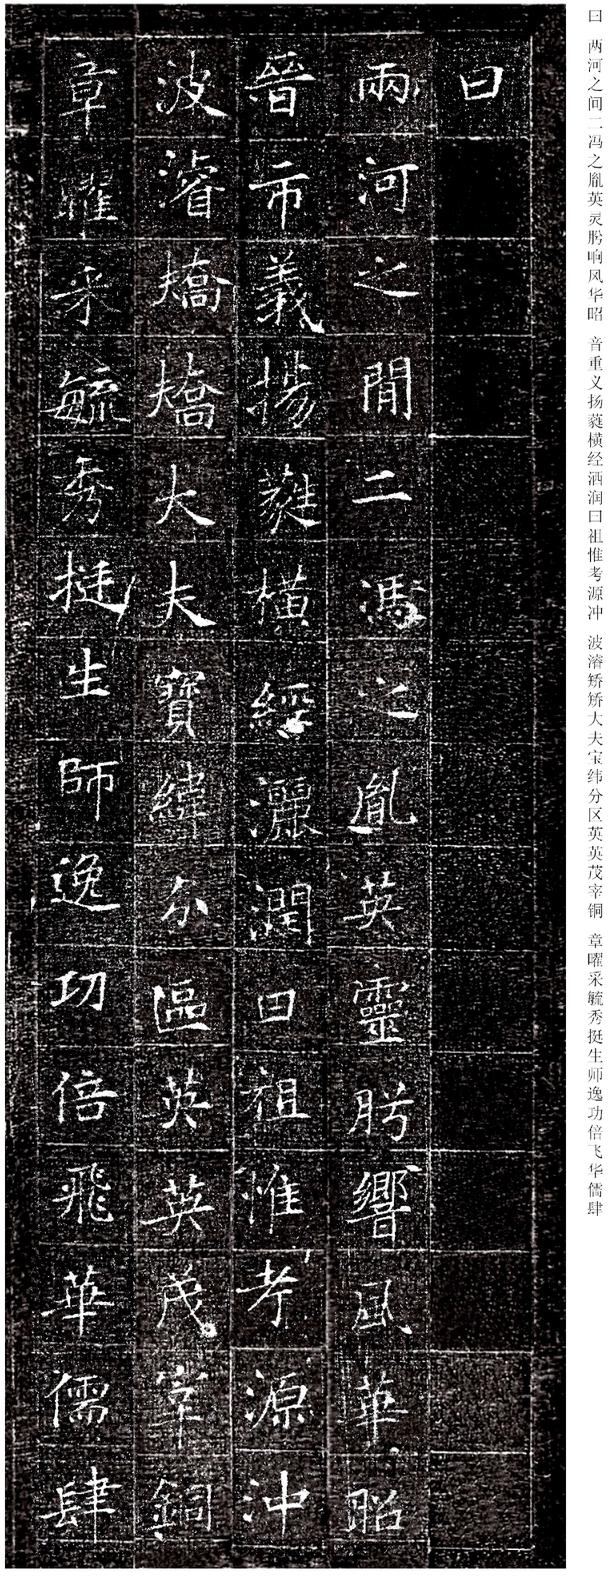 曰 两河之间二冯之胤英灵肹响风华昭 音重义扬蕤横经洒润曰祖惟考源冲 波濬矫矫大夫宝纬分区英英茂宰铜 章曜采毓秀挺生师逸功倍飞华儒肆
曰
兩河之間二馮之胤英靈肹響風華昭
晉帀義揚蕤橫經灑潤曰祖惟考源沖
波濬矯矯大夫寶緯分區英英茂宰銅
章曜采毓秀挺生師逸功倍飛華儒肆